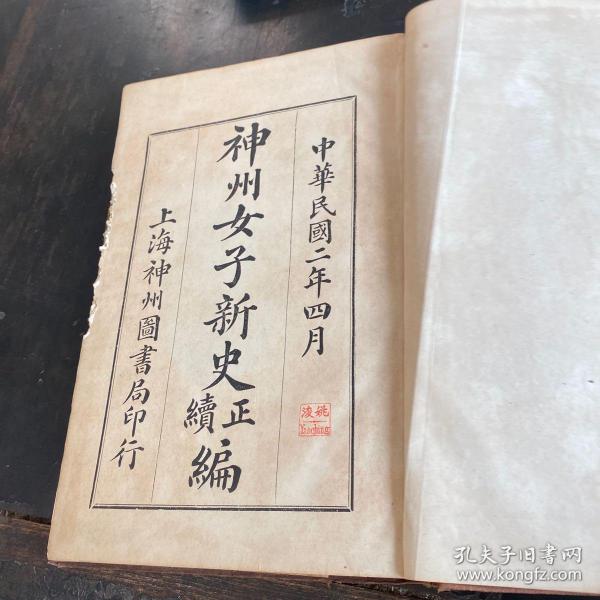 中華民國二年四月
神州女子新史正續編
上海神州圖書局印行
姚浚
孔夫子旧书网
www.kongfz.com